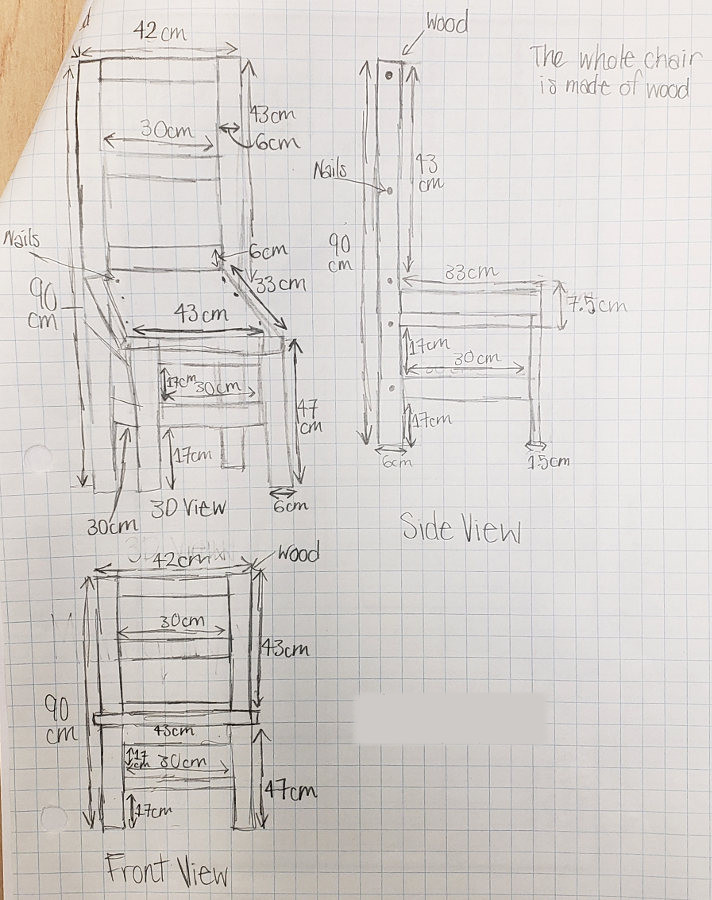 42cm
Wood
The whole chair
is made of wood
43cm
30cm
6cm
43
cm
Nails
Nails
6cm
90
cm
33cm
33cm
90
cm
43cm
7.5cm
17cm
30cm
17cm
30cm
47
cm
17cm
17cm
6cm
15cm
3D View
6cm
30cm
Side View
42cm
Wood
30cm
43cm
90
cm
43cm
17
cm
30cm
17cm
47cm
Front View